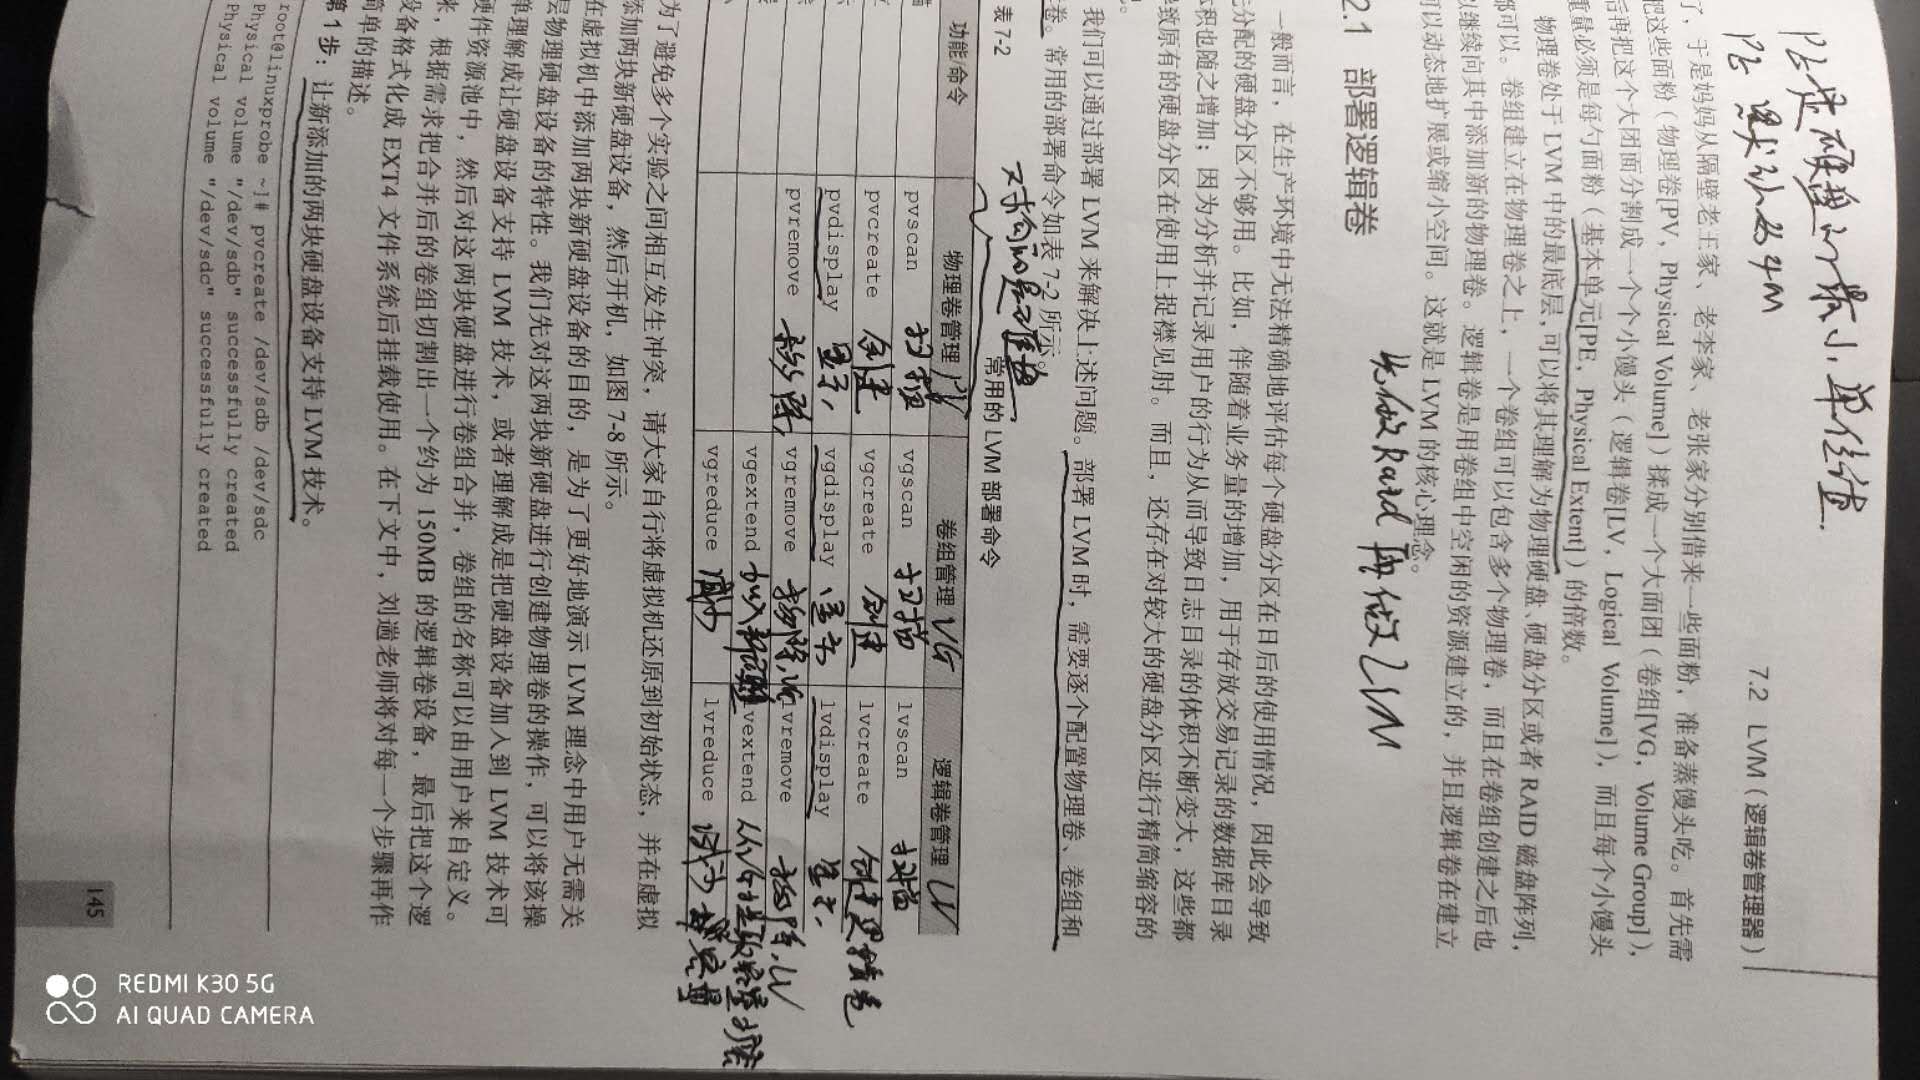 PE是硬盘的最小单位值
PE 默认为4M
7.2 LVM（逻辑卷管理器）
了，于是妈妈从隔壁老王家、老李家、老张家分别借来一些面粉，准备蒸馒头吃。首先需
把这些面粉（物理卷[PV，Physical Volume]）揉成一个大面团（卷组[VG，Volume Group]），
后再把这个大团面分割成一个个小馒头（逻辑卷[LV，Logical Volume]），而且每个小馒头
重量必须是每勺面粉（基本单元[PE，Physical Extent]）的倍数。
物理卷处于 LVM 中的最底层，可以将其理解为物理硬盘、硬盘分区或者 RAID 磁盘阵列，
都可以。卷组建立在物理卷之上，一个卷组可以包含多个物理卷，而且在卷组创建之后也
以继续向其中添加新的物理卷。逻辑卷是用卷组中空闲的资源建立的，并且逻辑卷在建立
可以动态地扩展或缩小空间。这就是 LVM 的核心理念。
2.1 部署逻辑卷
先做Raid 再做LVM
一般而言，在生产环境中无法精确地评估每个硬盘分区在日后的使用情况，因此会导致
先分配的硬盘分区不够用。比如，伴随着业务量的增加，用于存放交易记录的数据库目录
体积也随之增加；因为分析并记录用户的行为从而导致日志目录的体积不断变大，这些都
导致原有的硬盘分区在使用上捉襟见肘。而且，还存在对较大的硬盘分区进行精简缩容的
我们可以通过部署 LVM 来解决上述问题。部署 LVM 时，需要逐个配置物理卷、卷组和
卷。常用的部署命令如表 7-2 所示。
表 7-2 常用的 LVM 部署命令
功能/命令 物理卷管理 PV 卷组管理 VG 逻辑卷管理 LV
pvscan 扫描 vgscan 扫描 lvscan 扫描
pvcreate 创建 vgcreate 创建 lvcreate 创建
pvdisplay 显示 vgdisplay 显示 lvdisplay 显示
pvremove 移除 vgremove 移除 lvremove 移除LV
vgextend lvextend
vgreduce 减少 lvreduce 减少
为了避免多个实验之间相互发生冲突，请大家自行将虚拟机还原到初始状态，并在虚拟
添加两块新硬盘设备，然后开机，如图 7-8 所示。
在虚拟机中添加两块新硬盘设备的目的，是为了更好地演示 LVM 理念中用户无需关
层物理硬盘设备的特性。我们先对这两块新硬盘进行创建物理卷的操作，可以将该操
单理解成让硬盘设备支持 LVM 技术，或者理解成是把硬盘设备加入到 LVM 技术可
硬件资源池中，然后对这两块硬盘进行卷组合并，卷组的名称可以由用户来自定义。
来，根据需求把合并后的卷组切割出一个约为 150MB 的逻辑卷设备，最后把这个逻
设备格式化成 EXT4 文件系统后挂载使用。在下文中，刘遄老师将对每一个步骤再作
简单的描述。
第 1 步：让新添加的两块硬盘设备支持 LVM 技术。
root@linuxprobe ~]# pvcreate /dev/sdb /dev/sdc
Physical volume "/dev/sdb" successfully created
Physical volume "/dev/sdc" successfully created
145
REDMI K30 5G
AI QUAD CAMERA